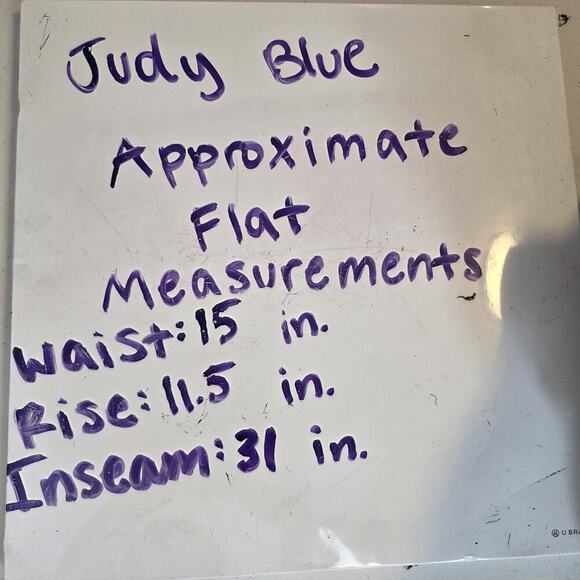 Judy Blue
Approximate
Flat
Measurements
Waist: 15 in.
Rise: 11.5 in.
Inseam: 31 in.